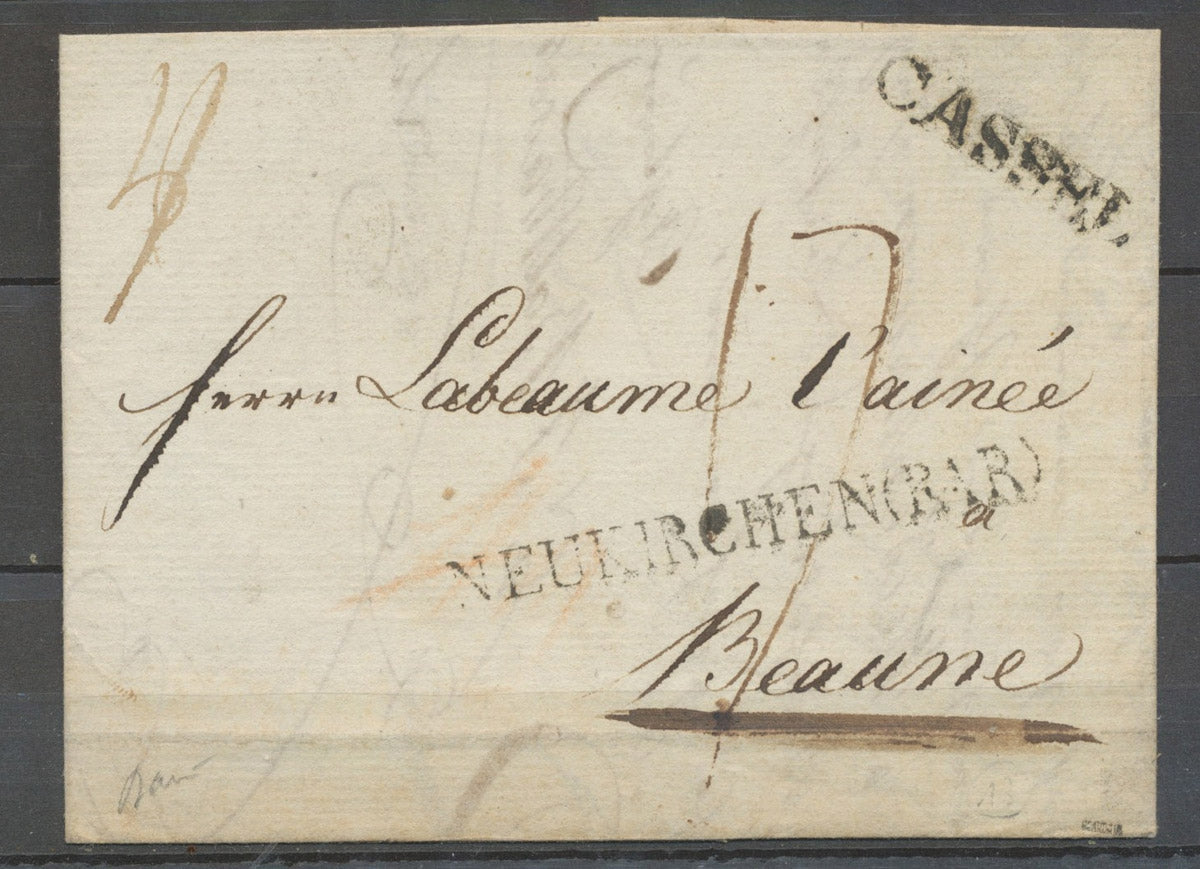 CASSEL
4
17
Herrn Labeaume l'ainée
NEUKIRCHEN (BAR)
a
Beaune